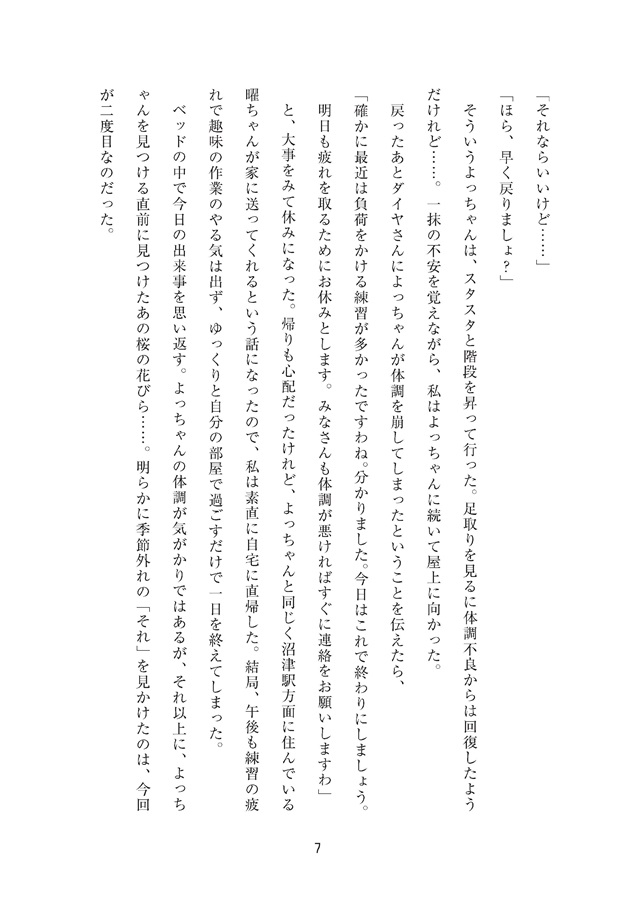 「それならいいけど……」
「ほら、早く戻りましょ？」
　そういうよっちゃんは、スタスタと階段を昇って行った。足取りを見るに体調不良からは回復したよう
だけれど……。一抹の不安を覚えながら、私はよっちゃんに続いて屋上に向かった。
　戻ったあとダイヤさんによっちゃんが体調を崩してしまったということを伝えたら、
「確かに最近は負荷をかける練習が多かったですわね。分かりました。今日はこれで終わりにしましょう。
　明日も疲れを取るためにお休みとします。みなさんも体調が悪ければすぐに連絡をお願いしますわ」
　と、大事をみて休みになった。帰りも心配だったけれど、よっちゃんと同じく沼津駅方面に住んでいる
曜ちゃんが家に送ってくれるという話になったので、私は素直に自宅に直帰した。結局、午後も練習の疲
れで趣味の作業のやる気は出ず、ゆっくりと自分の部屋で過ごすだけで一日を終えてしまった。
　ベッドの中で今日の出来事を思い返す。よっちゃんの体調が気がかりではあるが、それ以上に、よっち
ゃんを見つける直前に見つけたあの桜の花びら……。明らかに季節外れの「それ」を見かけたのは、今回
が二度目なのだった。
7